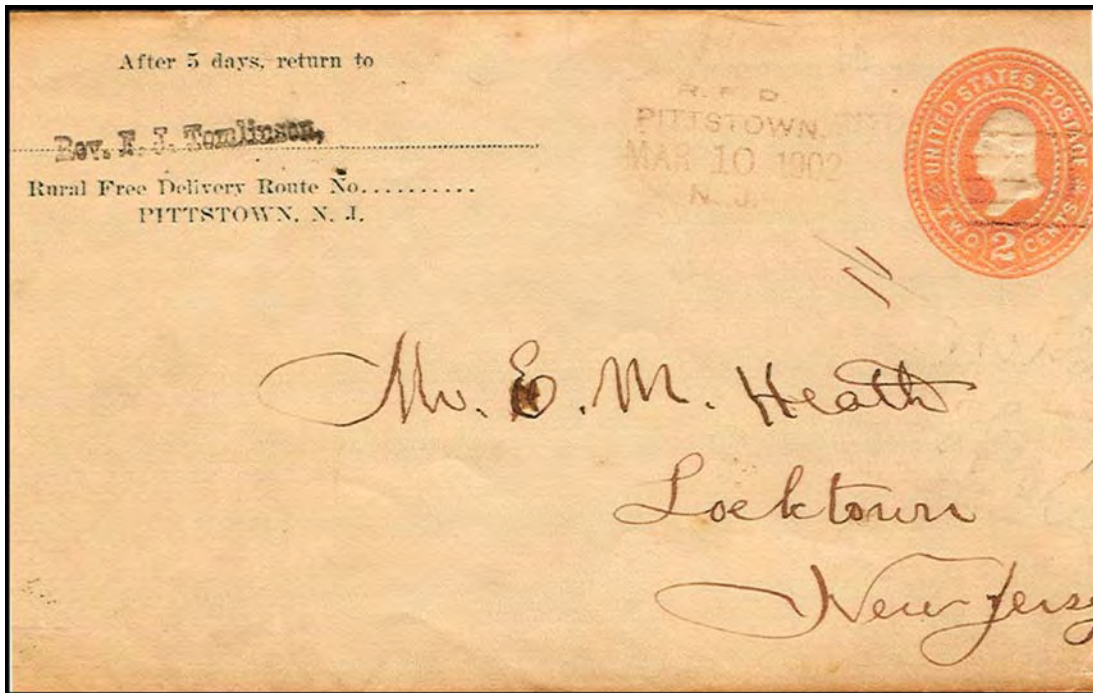 After 5 days, return to
Rev. F. J. Tomlinson,
Rural Free Delivery Route No..........
PITTSTOWN, N. J.
R. F. D.
PITTSTOWN.
MAR 10 1902
N. J.
UNITED STATES POSTAGE
TWO 2 CENTS
Mr. E. M. Heath
Locktown
New Jersey